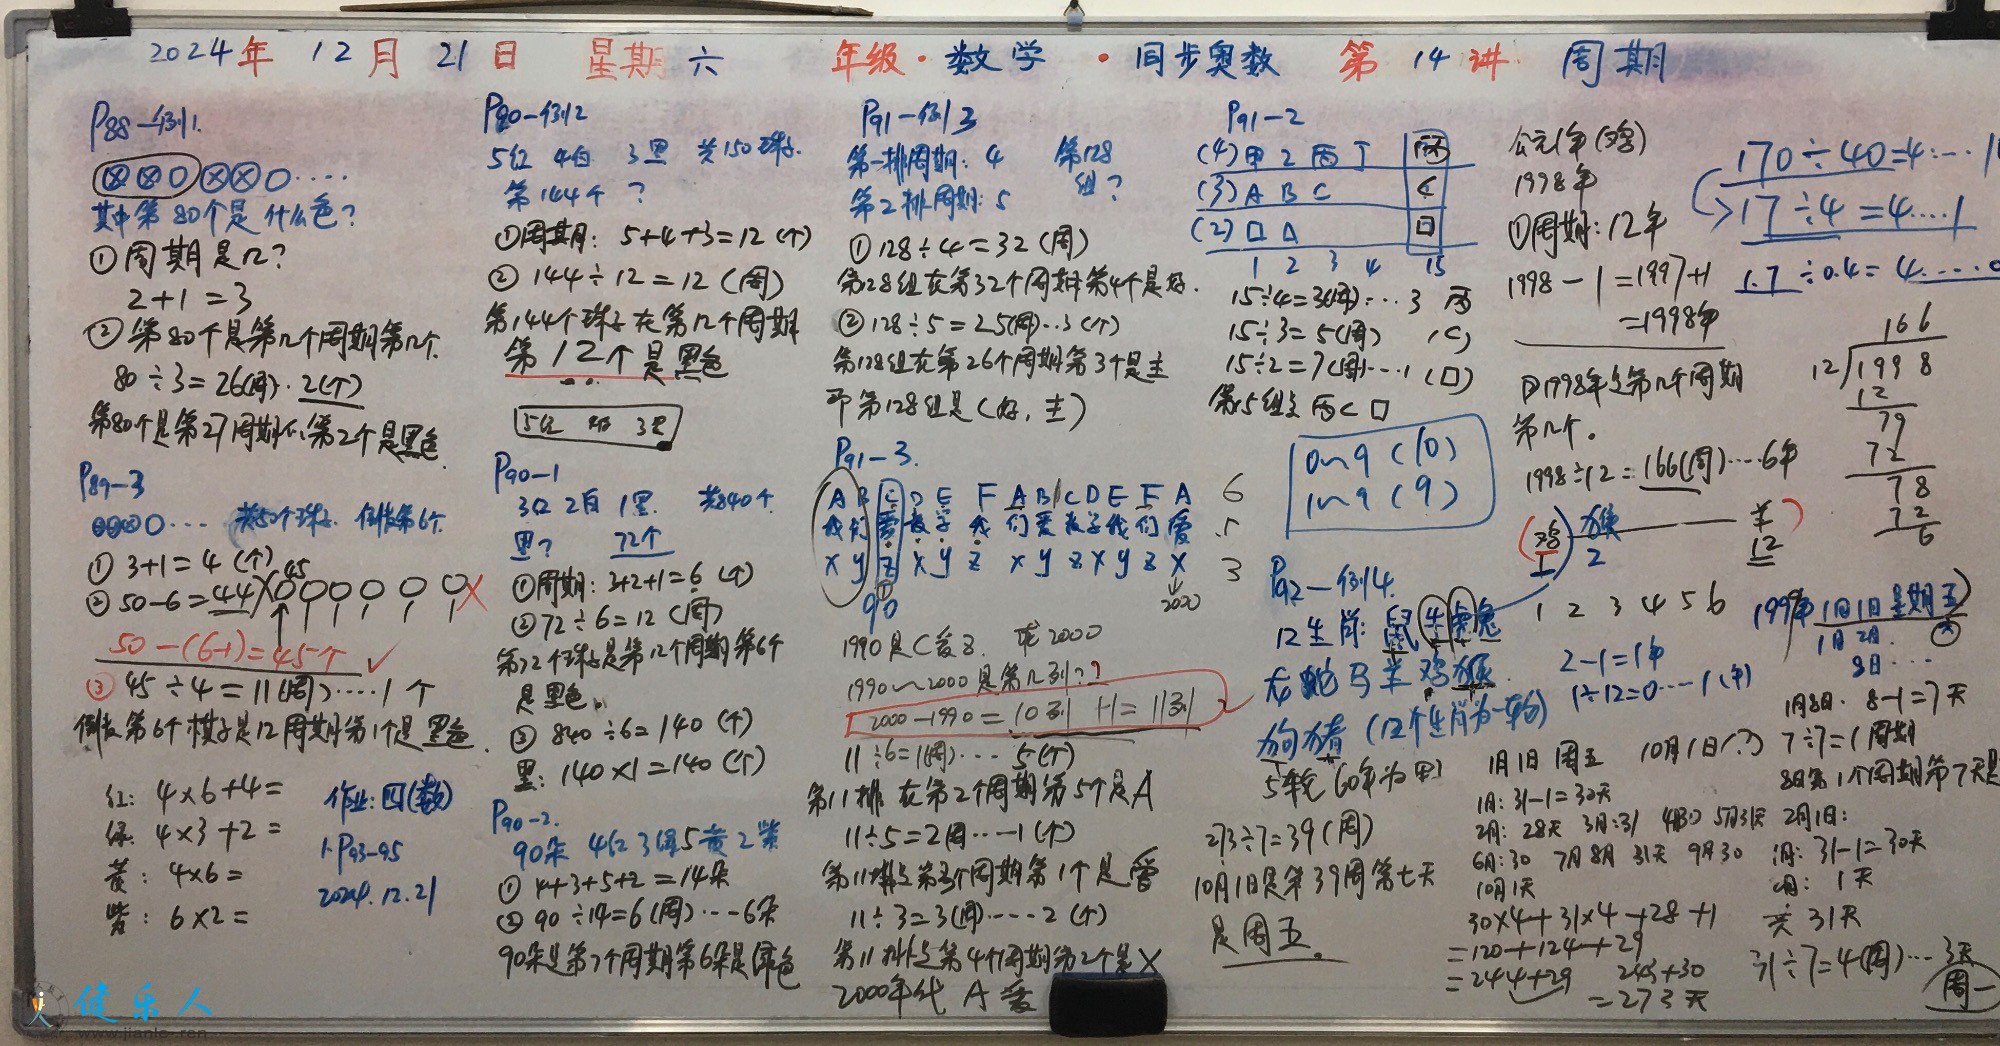 2024年 12月 21日 星期六 年级·数学·同步奥数 第14讲 周期
P88-例1.
其中第80个是什么色?
①周期是几?
2+1=3
②第80个是第几个周期第几个.
80÷3=26(周)·2(个)
第80个是第27周期的第2个是黑色.
P89-3
共50个珠子. 倒数第6个.
①3+1=4(个)
②50-6=44 × 45
50-(6-1)=45个 ✓
③45÷4=11(周)····1个
倒数第6个棋子是12周期第1个是黑色.
红: 4×6+4=
绿: 4×3+2=
黄: 4×6=
紫: 6×2=
作业: 四(数)
1·P93-95
2024.12.21
P90-例2
5红 4白 3黑 共150珠子.
第144个?
①周期: 5+4+3=12(个)
②144÷12=12(周)
第144个珠子在第12个周期
第12个是黑色
5红 4白 3黑
P90-1
3红 2白 1黑. 共840个.
黑? 72个
①周期: 3+2+1=6(个)
②72÷6=12(周)
第72个珠子是第12个周期第6个
是黑色.
③840÷6=140(个)
黑: 140×1=140(个)
P90-2.
90朵 4红3绿5黄2紫
①4+3+5+2=14朵
②90÷14=6(周)···6朵
90朵是第7个周期第6朵是绿色
P91-例3
第一排周期: 4 第128
第2排周期: 5 组?
①128÷4=32(周)
第128组在第32个周期第4个是好.
②128÷5=25(周)··3(个)
第128组在第26个周期第3个是主
即第128组是(好,主)
P91-3.
A B C D E F A B C D E F A 6
我们爱数学我们爱数学我们爱 5
X Y Z X Y Z X Y Z X Y Z X 3
90 2000
1990是C爱Z. 求2000
1990~2000是第几列??
2000-1990=10列 +1=11列
11÷6=1(周)··· 5(个)
第11排在第2个周期第5个是A
11÷5=2周···1(个)
第11排是第3个周期第1个是爱
11÷3=3(周)····2(个)
第11排是第4个周期第2个是X
2000年代 A 爱
P91-2
(4)甲乙丙丁 丙
(3)A B C C
(2)□ △ □
1 2 3 4 15
15÷4=3(周)···3 丙
15÷3=5(周) (C)
15÷2=7(周)···1(□)
第15组是丙C□
0~9(10)
1~9(9)
P92-例4.
12生肖: 鼠牛虎兔
龙蛇马羊鸡猴
狗猪(12个生肖为一轮)
5轮(60年为甲)
273÷7=39(周)
10月1日是第39周第七天
是周五.
公元1年(鸡)
1998年
①周期: 12年
1998-1=1997+1
=1998年
②1998年是第几个周期
第几个.
1998÷12=166(周)····6年
(鸡 猴 —— 羊)
1 2 12
1 2 3 4 5 6
2-1=1年
1÷12=0···1(年)
170÷40=4····1
17÷4=4····1
1.7÷0.4=4····0
166
12)1998
12
79
72
78
72
6
1999年1月1日星期五
1月2日.
8日····
1月8日. 8-1=7天
7÷7=1周期
8日第1个周期第7天是
1月1日 周五 10月1日(?)
1月: 31-1=30天
2月: 28天 3月:31 4月30 5月31天
6月:30 7月8月 31天 9月30
10月1天
30×4+31×4+28+1
=120+124+29
=244+29 243+30
=273天
2月1日:
1月: 31-1=30天
2月: 1天
共31天
31÷7=4(周)···3天
周一
健乐人
www.jianle.ren